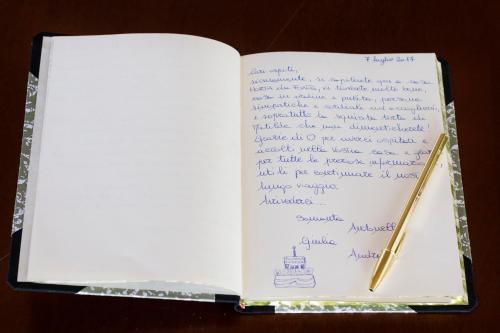 7 luglio 2017
Cari ospiti,
sicuramente, se capiterete qui a casa
Maria da Fonte, vi troverete molto bene,
casa in ordine e pulita, persone
simpatiche e cordiali ad accogliervi,
e soprattutto la squisita torta di
Matilde che non dimenticherete!
Grazie di ♡ per averci ospitati e
accolti nella Vostra casa e
per tutte le preziose
utili per continuare il nostro
lungo viaggio.
Arrivederci...
Samanta
Giulia